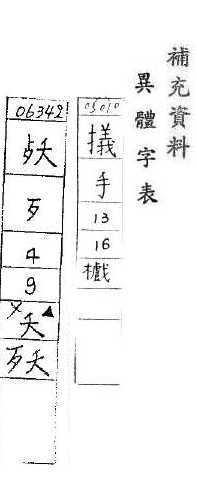 補充資料
異體字表
05010
㩘
手
13
16
06342
歹
4
9
夭
殀